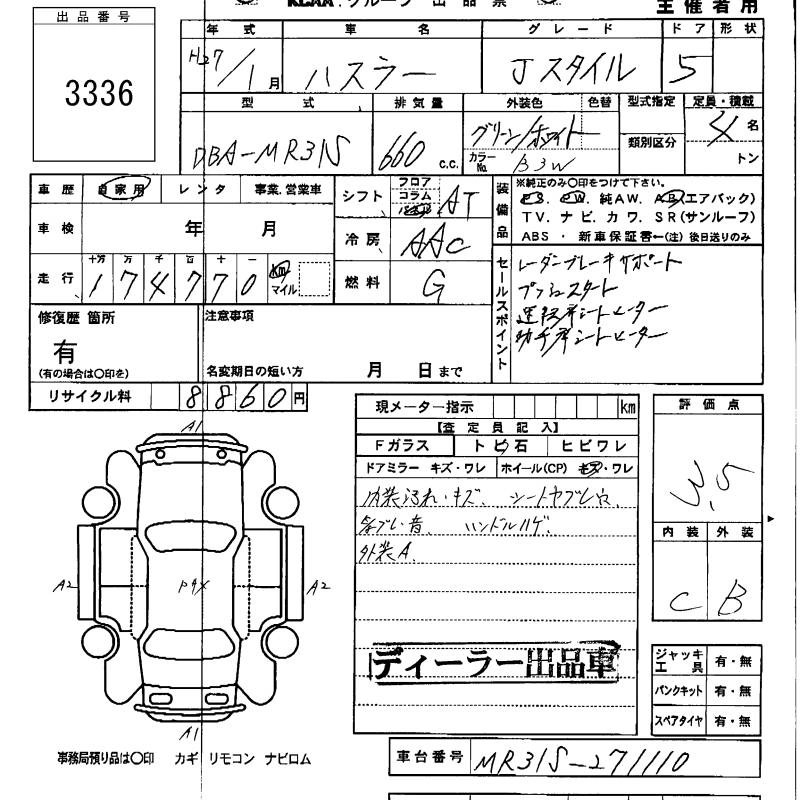 KCAA.グループ 出品票
主催者用
出品番号
3336
年式 車名 グレード ドア 形状
H27/1月 ハスラー Jスタイル 5
型式 排気量 外装色 色替 型式指定 定員・積載
DBA-MR31S 660 c.c. グリーン/ホワイト 類別区分 4名
カラーNo. B3W トン
車歴 自家用 レンタ 事業.営業車
車検 年 月
走行 十万 万 千 百 十 一
174770 km マイル
シフト フロア コラム AT
冷房 AAC
燃料 G
装備品 ※純正のみ〇印をつけて下さい。
PS. PW. 純AW. AB(エアバック)
TV. ナビ. カワ. SR(サンルーフ)
ABS ・ 新車保証書←(注)後日送りのみ
セールスポイント
レーダーブレーキサポート
プッシュスタート
運転席シートヒーター
助手席シートヒーター
修復歴 箇所
有
(有の場合は〇印を)
注意事項
名変期日の短い方 月 日まで
リサイクル料 8860円
現メーター指示 km
【査定員記入】
Fガラス トビ石 ヒビワレ
ドアミラー キズ・ワレ ホイール(CP) キズ・ワレ
内装汚れ・キズ. シートヤブレ穴.
ハンドルハゲ.
外装A.
ディーラー出品車
評価点
3.5
内装 外装
C B
A1
A2 A2
A1
ジャッキ 工具 有・無
パンクキット 有・無
スペアタイヤ 有・無
事務局預り品は〇印 カギ リモコン ナビロム
車台番号 MR31S-271110